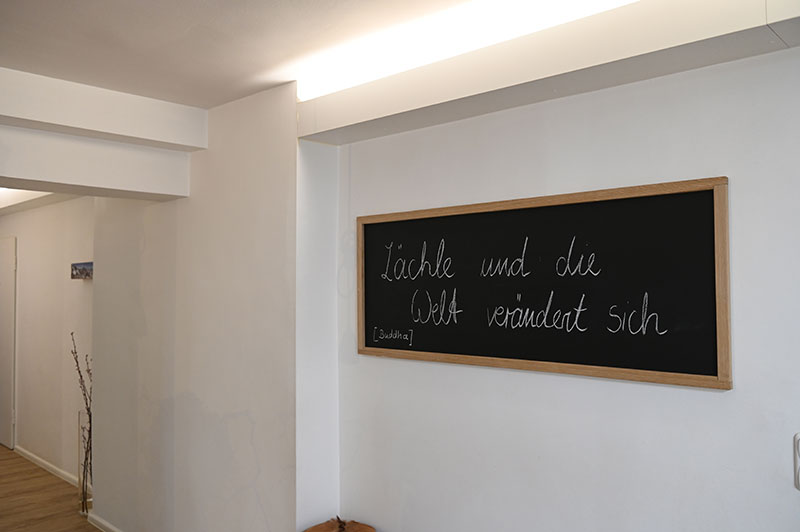 Lächle und die
Welt verändert sich
[Buddha]